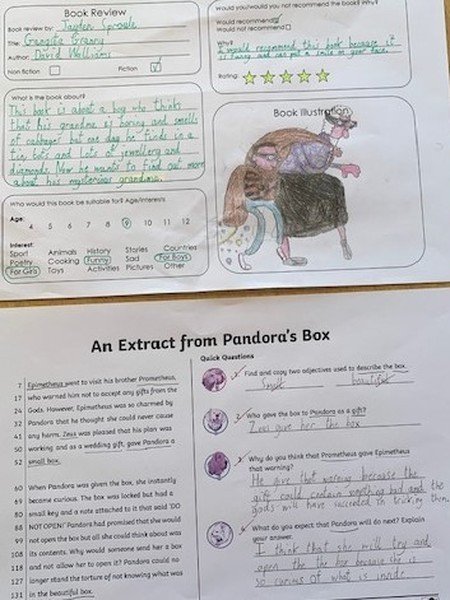 Book Review
Book review by: Jayden Sproule
Title: Gangsta Granny
Author: David Walliams
Non fiction
Fiction
What is the book about?
This book is about a boy who thinks
that his grandma is boring and smells
of cabbage but one day he finds in a
tiny tots and lots of jewellery and
diamonds. Now he wants to find out more
about his mysterious grandma.
Who would this book be suitable for? Age/Interests
Age:
4 5 6 7 8 9 10 11 12
Interest:
Sport Animals History Stories Countries
Poetry Cooking Funny Sad For Boys
For Girls Toys Activities Pictures Other
Would you/would you not recommend the book? Why?
Would recommend
Would not recommend
Why?
I would recommend this book because it
is funny and can put a smile on your face.
Rating:
Book Illustration
An Extract from Pandora's Box
7 Epimetheus went to visit his brother Prometheus,
17 who warned him not to accept any gifts from the
24 Gods. However, Epimetheus was so charmed by
32 Pandora that he thought she could never cause
41 any harm. Zeus was pleased that his plan was
50 working and as a wedding gift, gave Pandora a
52 small box.
60 When Pandora was given the box, she instantly
69 became curious. The box was locked but had a
80 small key and a note attached to it that said 'DO
88 NOT OPEN!' Pandora had promised that she would
99 not open the box but all she could think about was
108 its contents. Why would someone send her a box
118 and not allow her to open it? Pandora could no
127 longer stand the torture of not knowing what was
131 in the beautiful box.
Quick Questions
1. Find and copy two adjectives used to describe the box.
Small beautiful
2. Who gave the box to Pandora as a gift?
Zeus gave her the box
3. Why do you think that Prometheus gave Epimetheus
that warning?
He give that warning because the
gift could contain something bad and the
gods will have succeeded in tricking them
4. What do you expect that Pandora will do next? Explain
your answer.
I think that she will try and
open the the box because she is
so curious of what is inside.